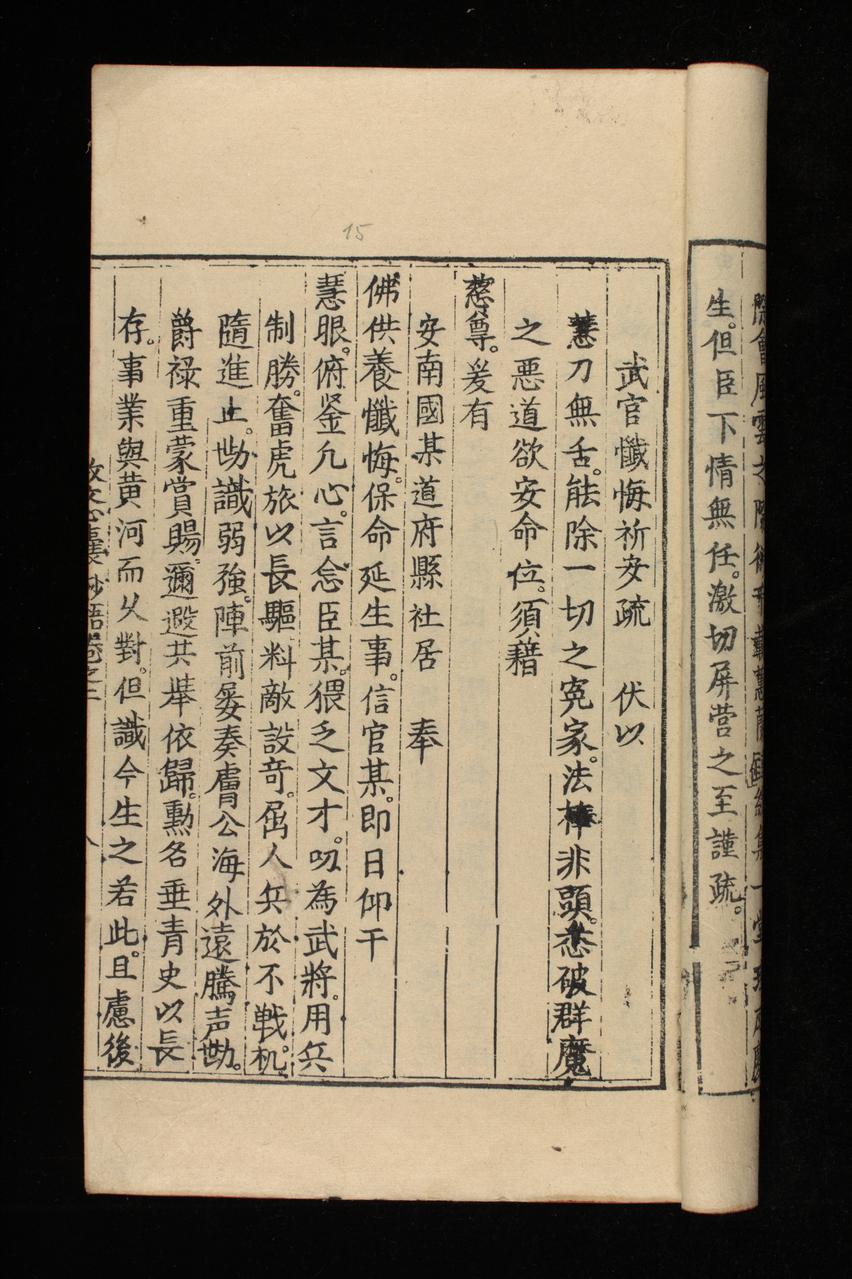 生。但臣下情無任。激切屏营之至謹疏。
15
武官懺悔祈安疏　伏以
慧刀無舌。能除一切之冤家。法棒非頭。悉破群魔
之恶道欲安命位。須藉
慈尊。爰有
安南國某道府縣社居　奉
佛供養懺悔。保命延生事。信官某。即日仰干
慧眼。俯鉴凢心。言念臣某。猥乏文才。叨為武將。用兵
制勝。奮虎旅以長驅料敵設竒。屈人兵於不戦。机
隨進止。势識弱強。陣前屡奏膚公海外遠騰声势。
爵禄重蒙賞賜。邇遐共舉依歸。勳名垂青史以長
存。事業與黄河而乆對。但識今生之若此。且慮後